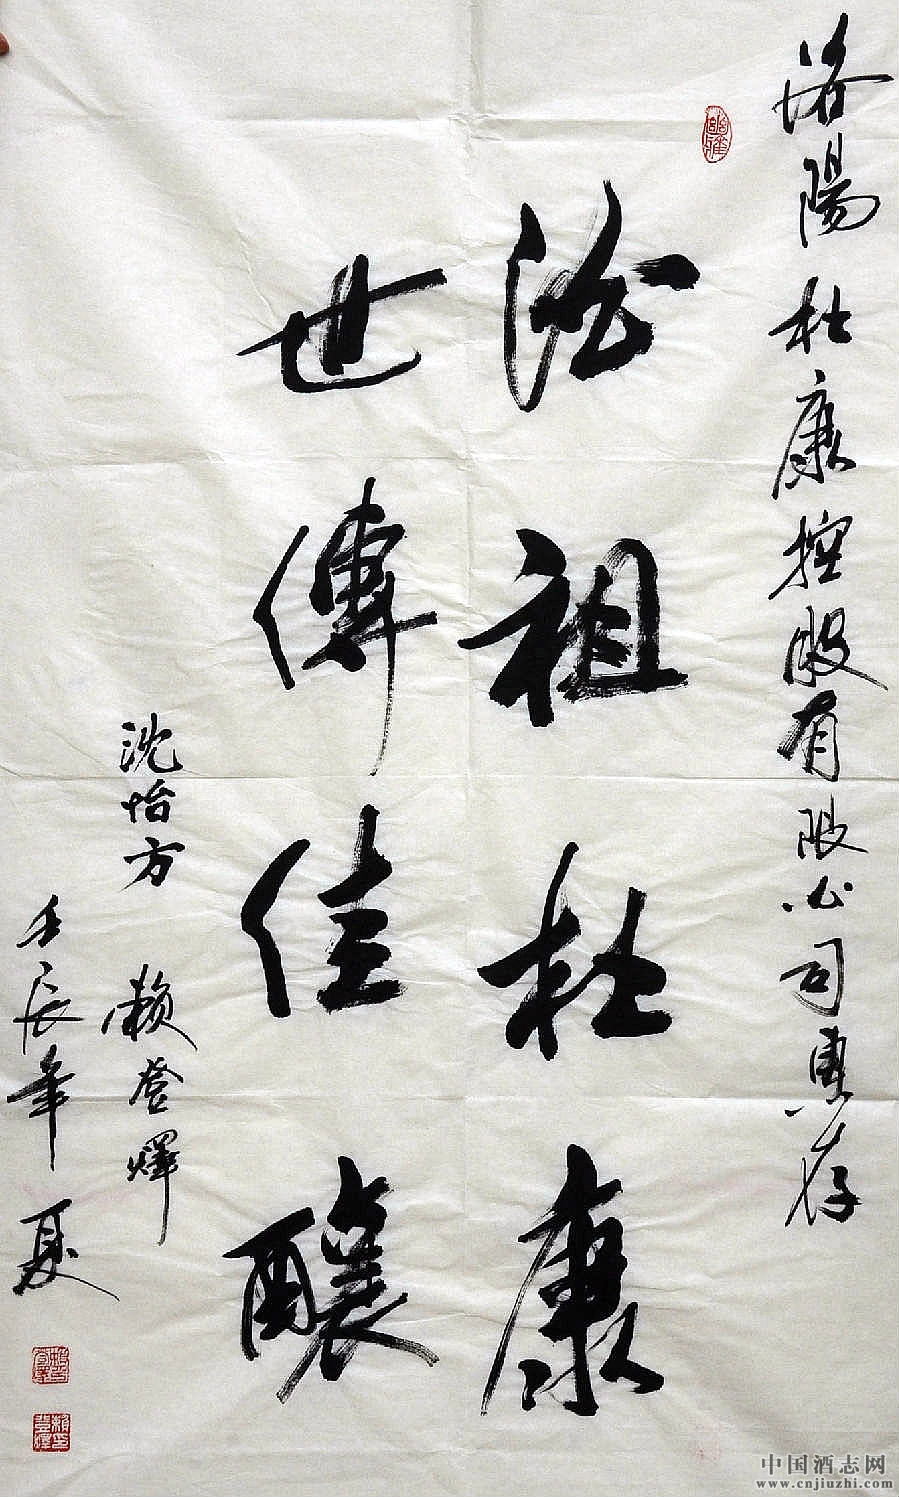 洛陽杜康控股有限公司惠存
祖杜康
世傳佳釀
沈怡方
賴登燡
壬辰年夏
中国酒志网
www.cnjiuzhi.com